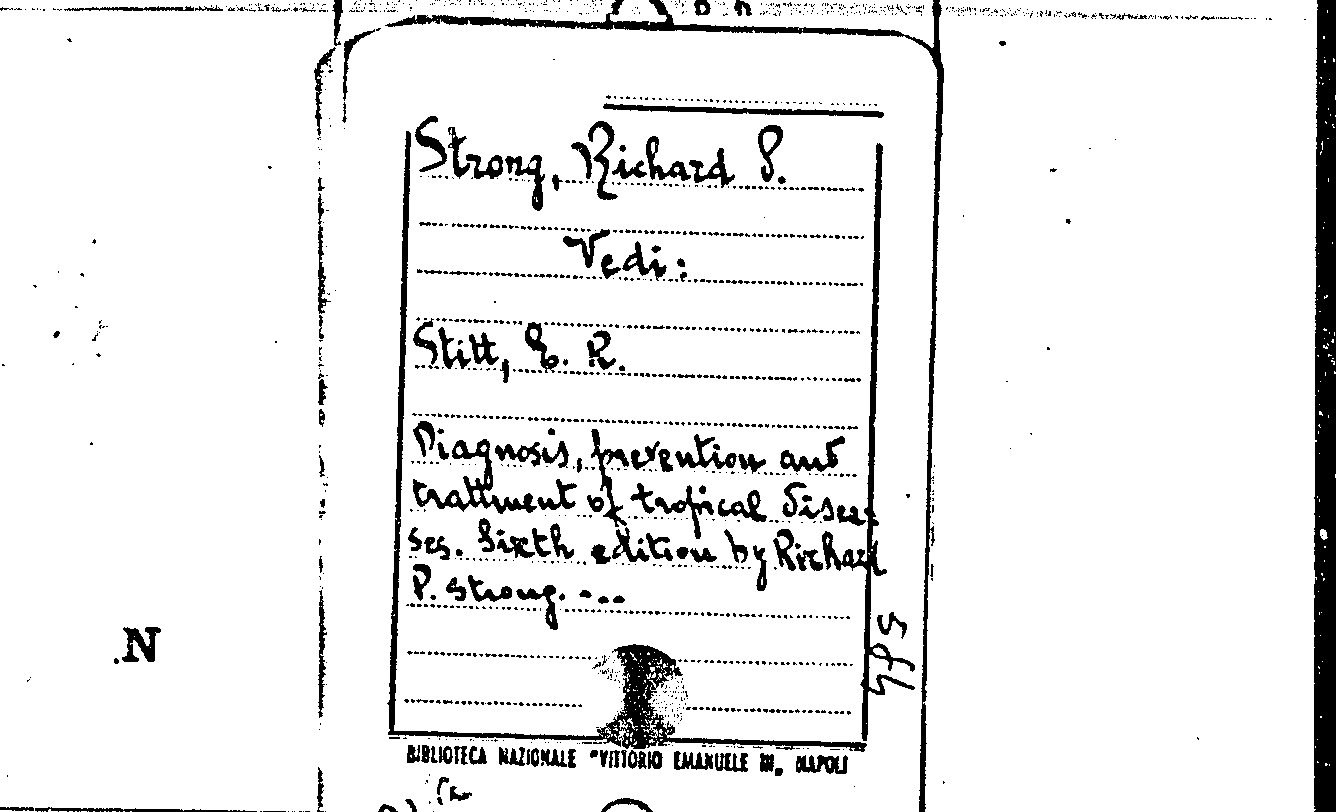 Strong, Richard P.
Vedi:
Stitt, E. R.
Diagnosis, prevention and
trattment of tropical disea=
ses. Sixth edition by Richard
P. Strong. ...
BIBLIOTECA NAZIONALE "VITTORIO EMANUELE III„ NAPOLI
.N